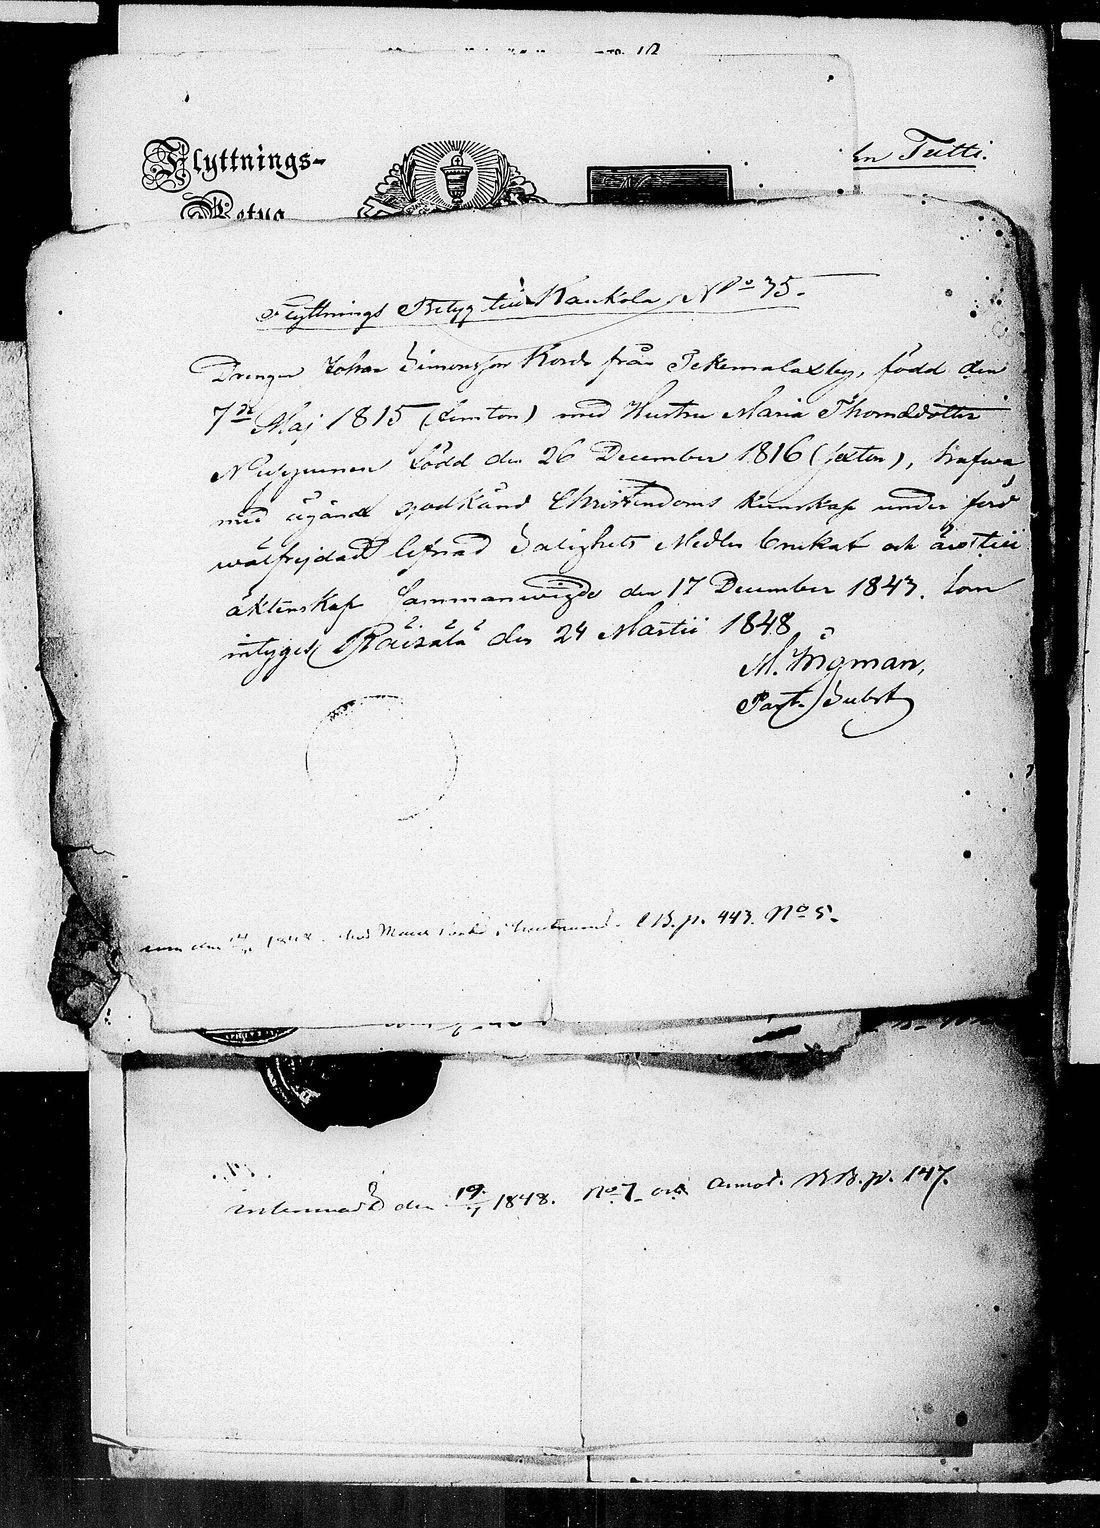 ln Tutti.
Flyttnings-
Betyg
Flyttnings Betyg till Kaukola, No 35.
Drengen Johan Simonsson Kord från Tekemalaxby, född den
7de Maj 1815 (femton) med Hustru Maria Thomædotter
född den 26 December 1816 (sexton), hafwa
med ägande godkänd Christendoms kunskap under förd
wälfrejdad lefnad Salighets Medlen brukat och äro till
äktenskap Sammanwigde den 17 December 1843. Som
intygas, Räisälä den 24 Martii 1848
M. Ingman,
Past. Subst
1848. CB. p. 443. No 5.
den 19/1 1848. No 7 och BB. p. 147.